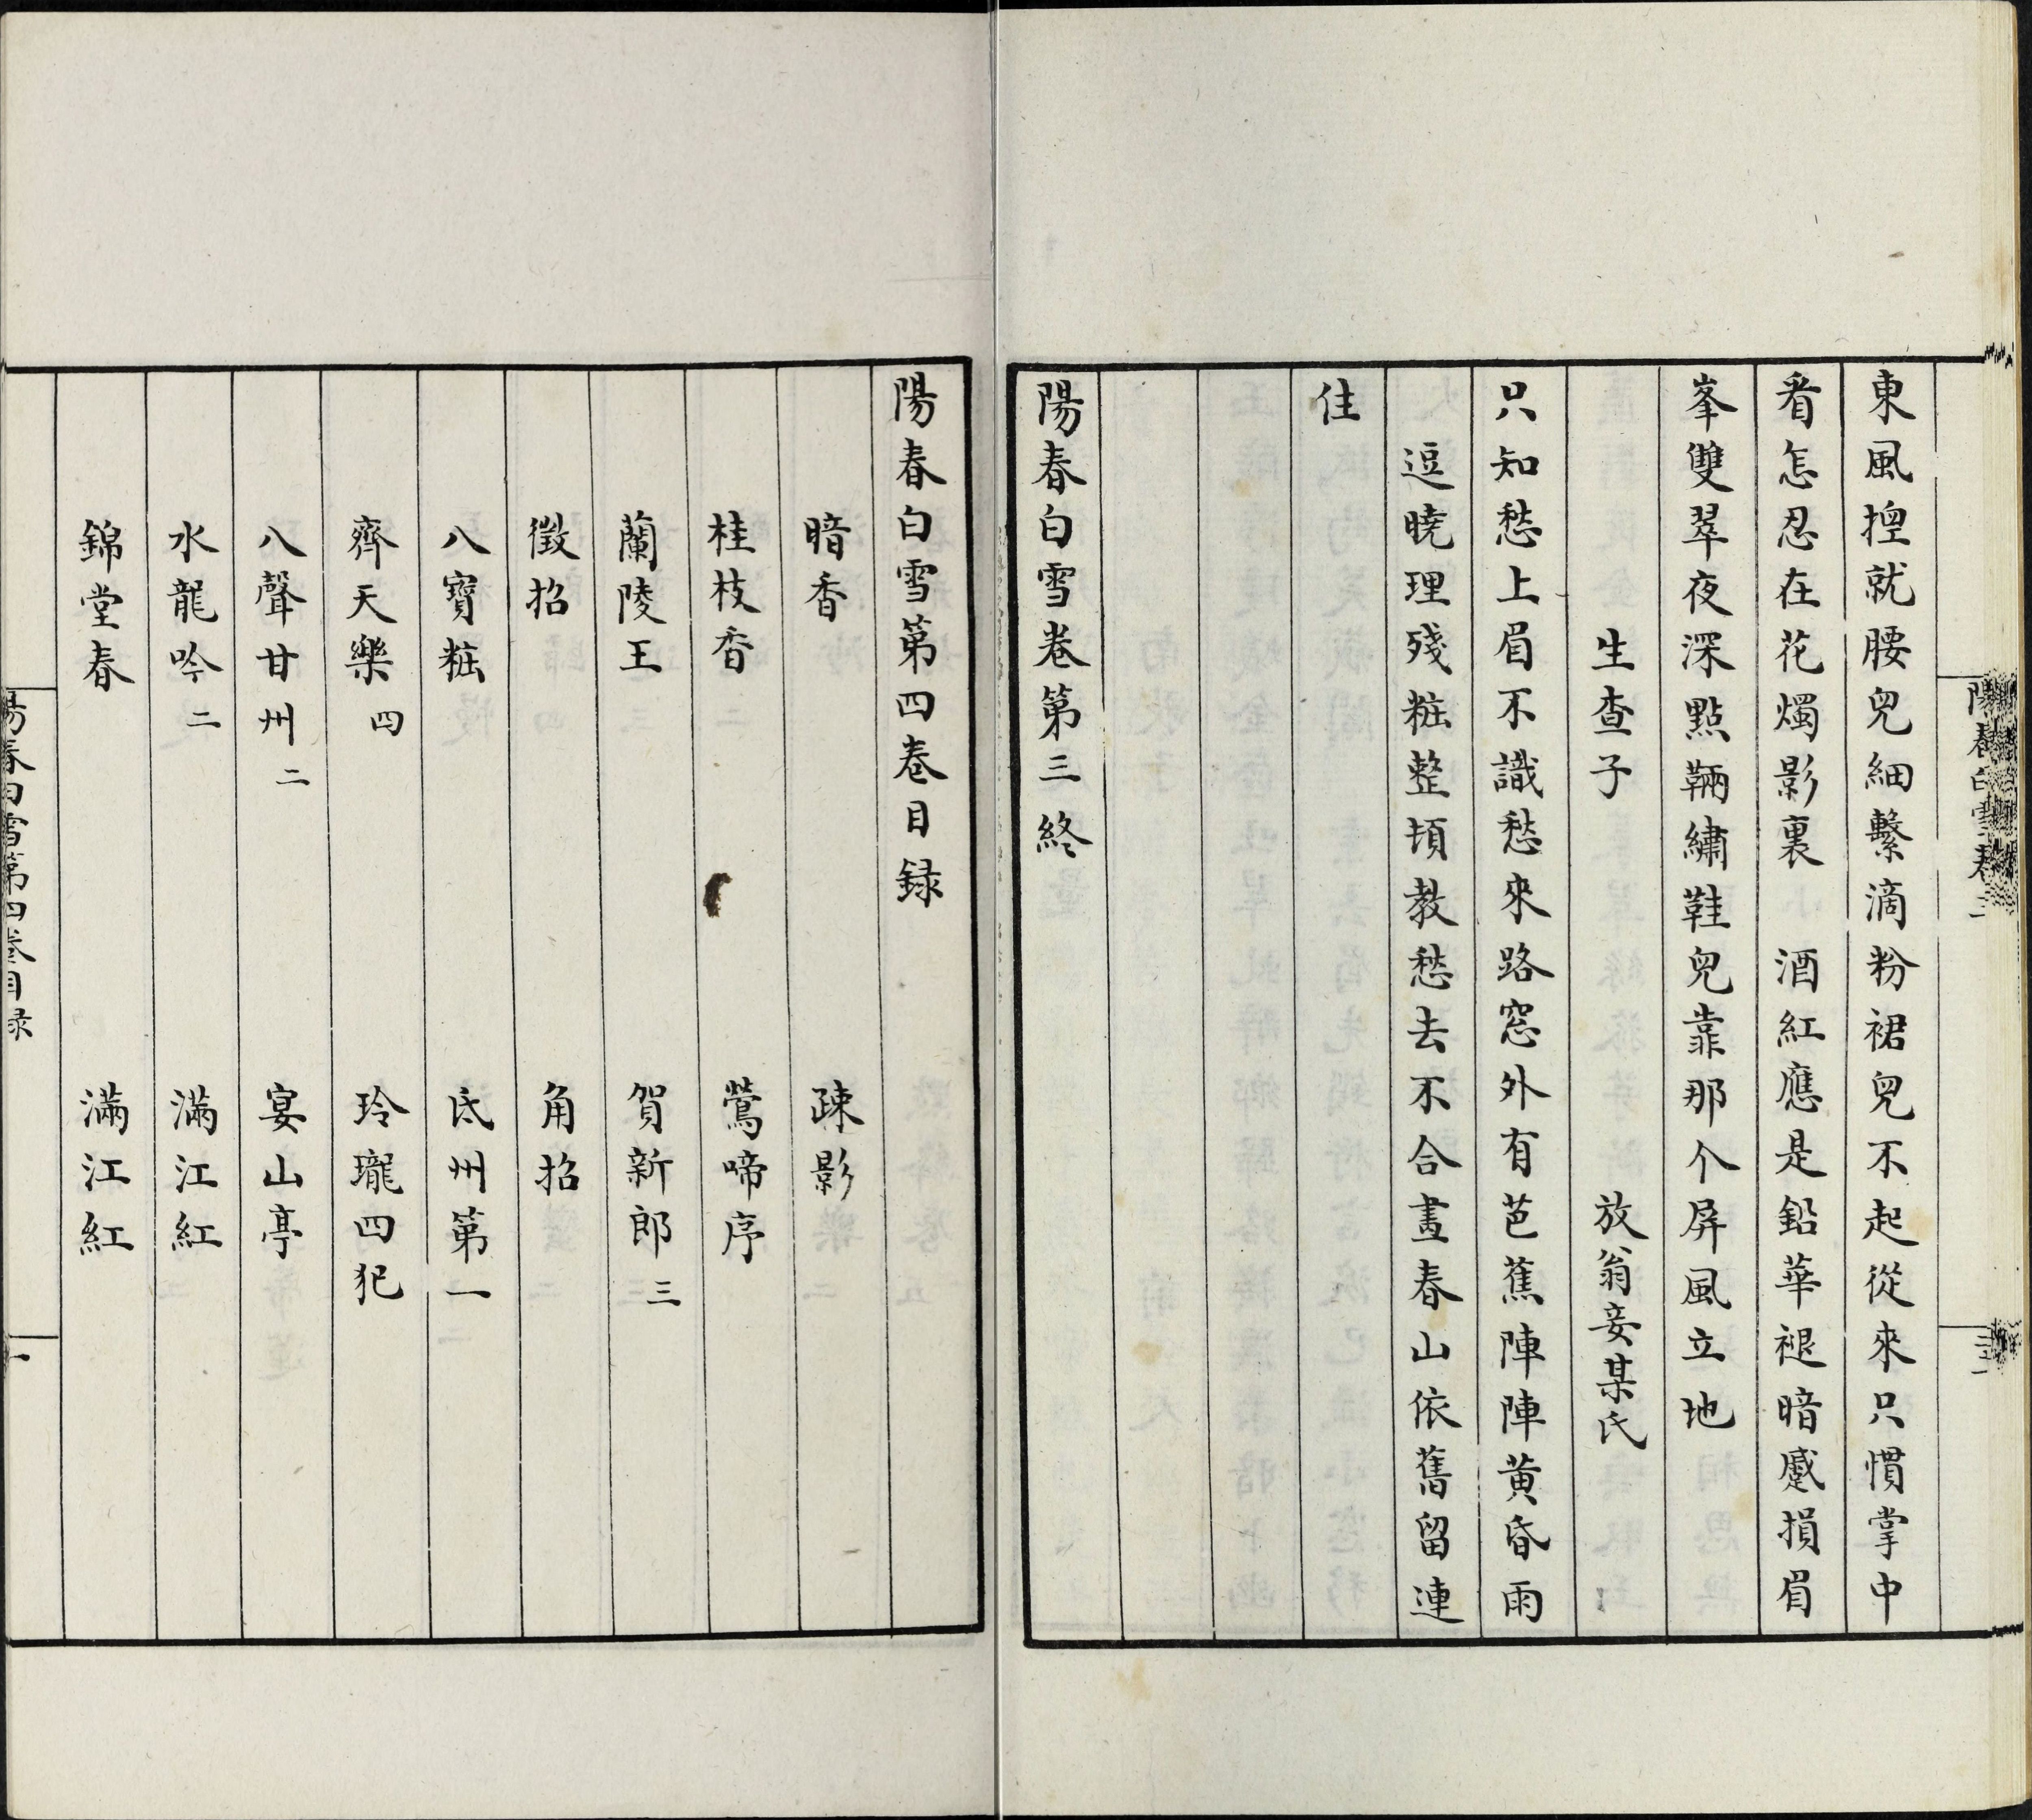 東風捏就腰兒細繫滴粉裙兒不起從來只慣掌中
看怎忍在花燭影裏　酒紅應是鉛華褪暗蹙損眉
峯雙翠夜深點輛繡鞋兒靠那个屏風立地
生查子　放翁妾某氏
只知愁上眉不識愁來路窓外有芭蕉陣陣黄昏雨
逗曉理殘粧整頓教愁去不合畫春山依舊留連
住
陽春白雪卷第三終
陽春白雪第四卷目録
暗香　疎影
桂枝香二　鶯啼序
蘭陵王　賀新郎三
徵招　角招
八寶粧　氐州第一
齊天樂四　玲瓏四犯
八聲甘州二　宴山亭
水龍吟二　滿江紅
錦堂春　滿江紅
陽春白雪第四卷目録
一